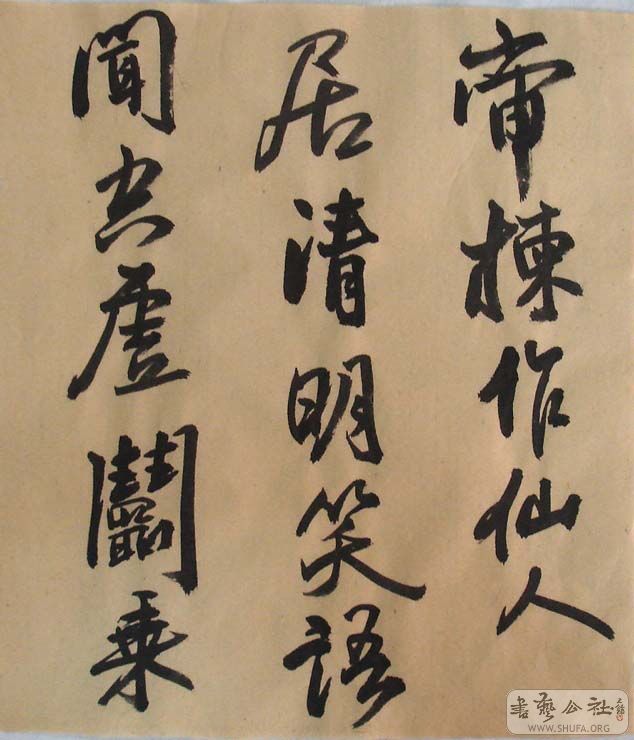 作仙人
居清明笑語
聞空虛鬭乘
書藝公社
WWW.SHUFA.ORG